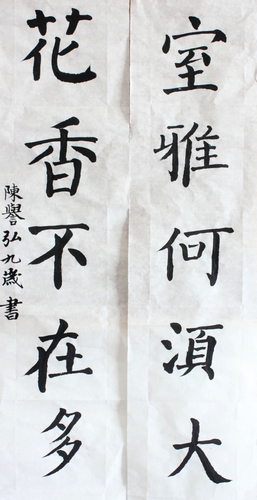 室雅何須大
花香不在多
陳譽弘九歲書